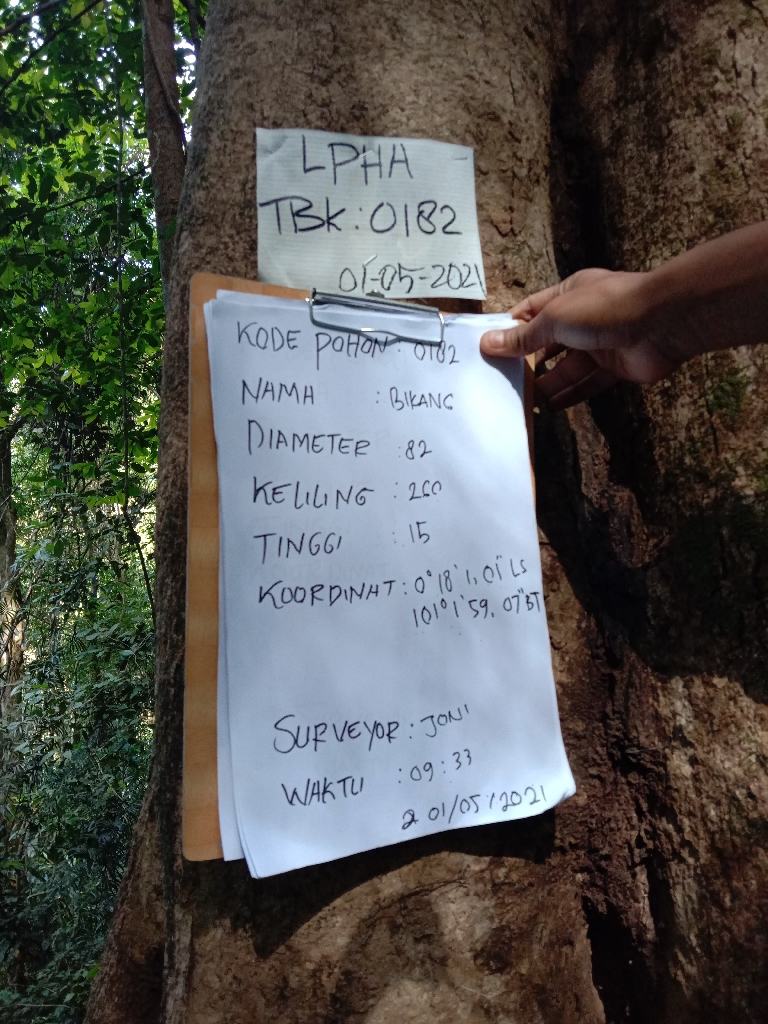 LPHA
TBK : 0182
01-05-2021
KODE POHON : 0182
NAMA : BIKANG
DIAMETER : 82
KELILING : 260
TINGGI : 15
KOORDINAT : 0°18'1,01" LS
101°1'59,07" BT
SURVEYOR : JONI
WAKTU : 09:33
01/05/2021